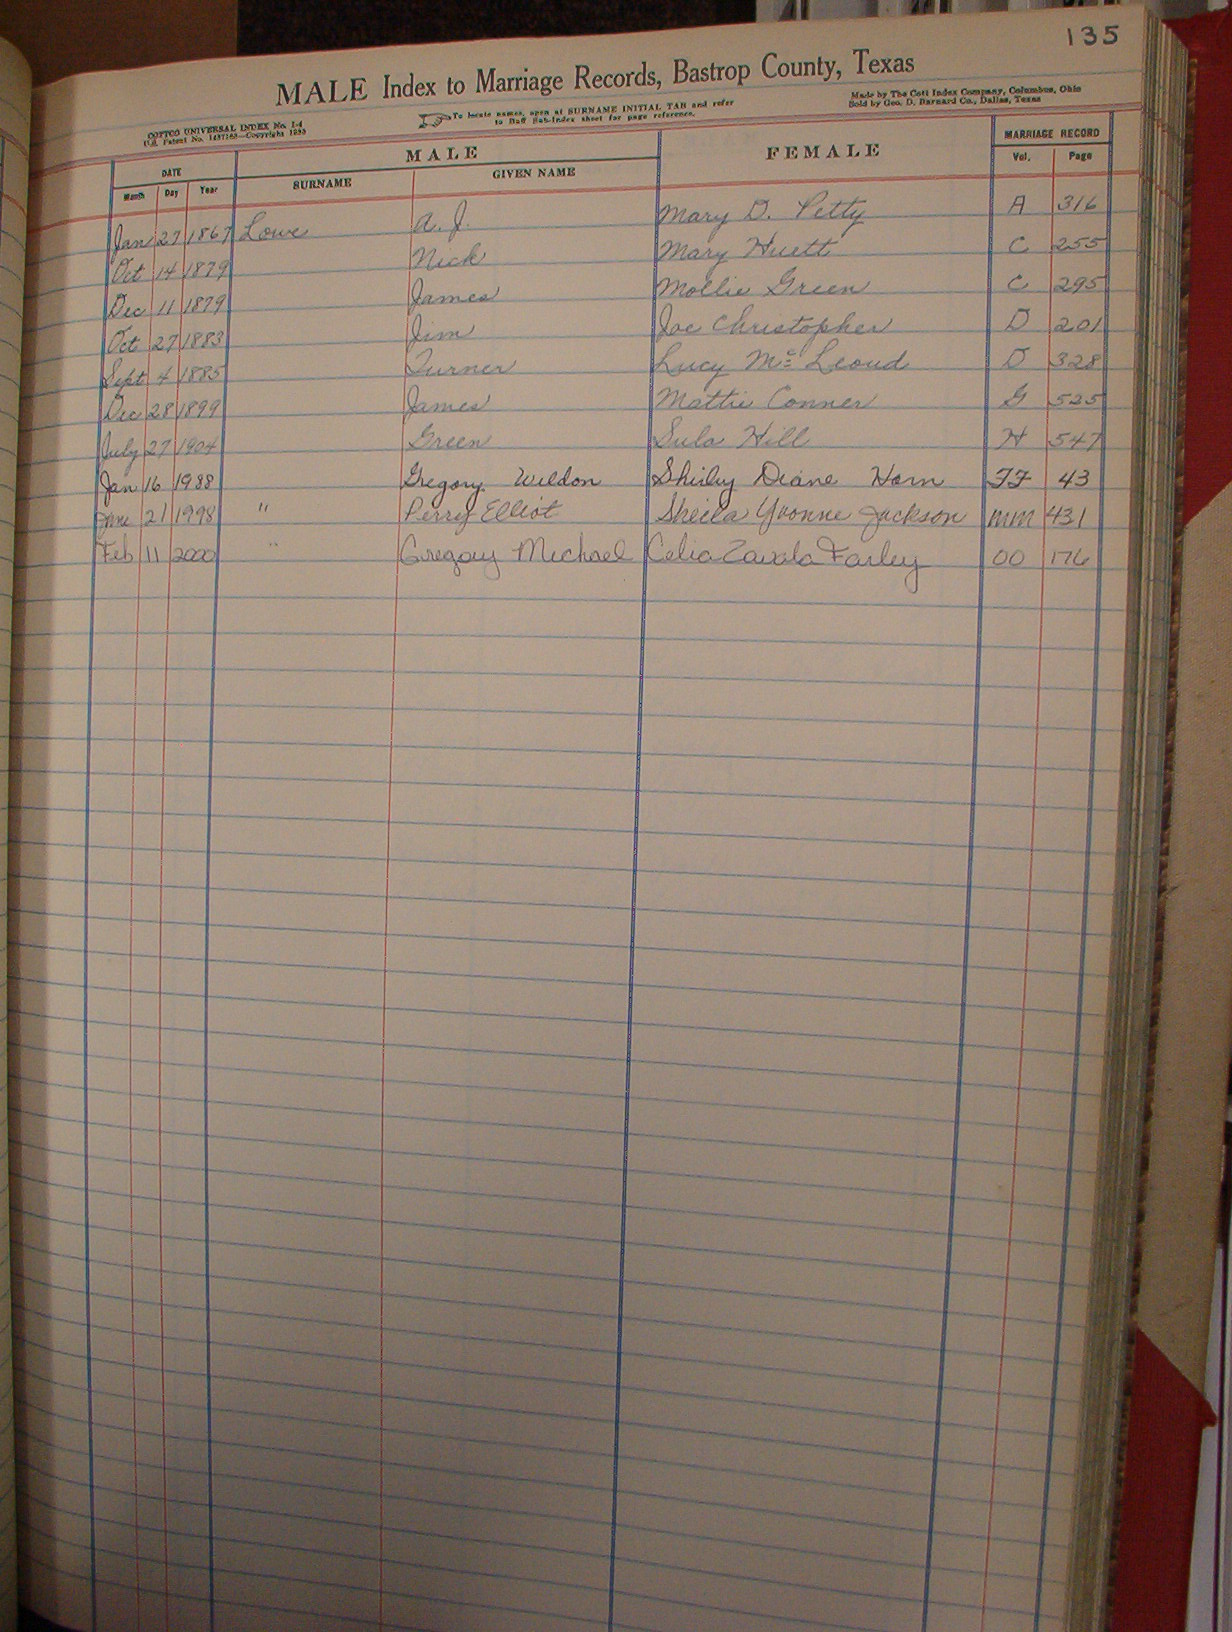 135
MALE Index to Marriage Records, Bastrop County, Texas
COTTCO UNIVERSAL INDEX No. 1-4
U.S. Patent No. Copyright
To locate names, open at SURNAME INITIAL TAB and refer
to Buff Sub-Index sheet for page reference.
Made by The Cott Index Company, Columbus, Ohio
Sold by Geo. D. Barnard Co., Dallas, Texas
DATE MALE FEMALE MARRIAGE RECORD
Month Day Year SURNAME GIVEN NAME Vol. Page
Jan 27 1867 Lowe A. J. Mary D. Petty A 316
Oct 14 1879 Nick Mary Huett C 255
Dec 11 1879 James Mollie Green C 295
Oct 27 1883 Jim Joe Christopher D 201
Sept 4 1885 Turner Lucy Mc Leoud D 328
Dec 28 1899 James Mattie Conner G 525
July 27 1904 Green Sula Hill H 547
Jan 16 1988 Gregory Weldon Shirley Diane Horn FF 43
June 21 1998 " Perry Elliot Sheila Yvonne Jackson MM 431
Feb 11 2000 " Gregory Michael Celia Zavala Farley OO 176